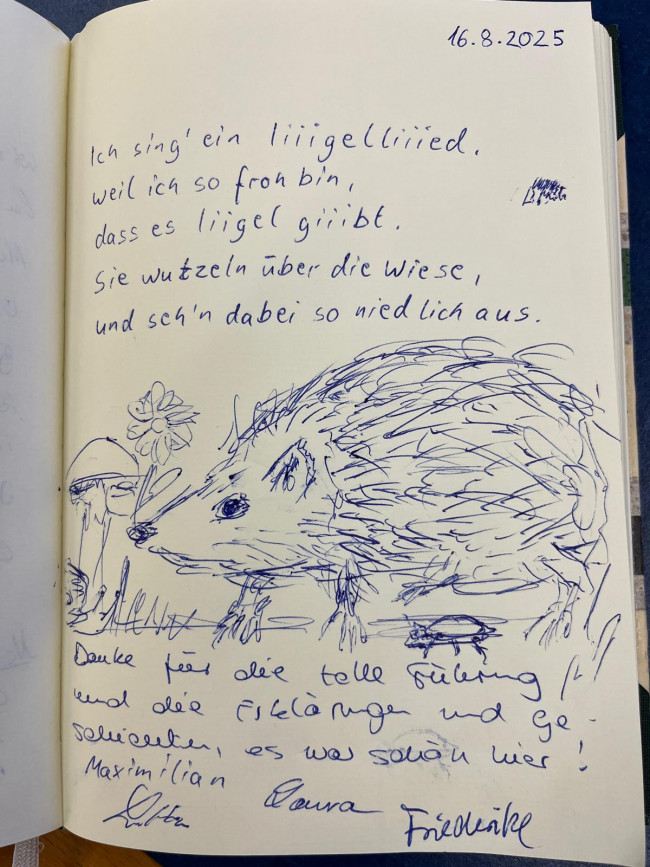 16.8.2025
Ich sing' ein liiigelliiied.
weil ich so froh bin,
dass es liigel giiibt.
Sie wutzeln über die Wiese,
und seh'n dabei so niedlich aus.
Danke für die tolle Führung
und die Erklärungen und Ge-
schichten, es war schön hier!
Maximilian
Laura
Friederike